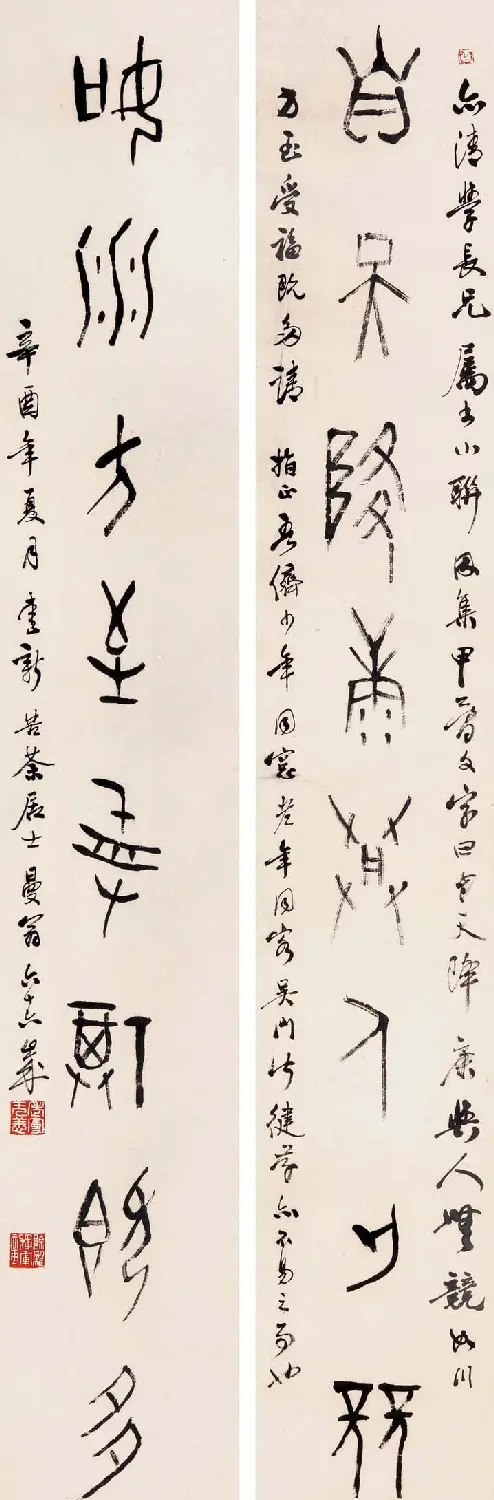 亦清學長兄屬書小聯因集甲骨文字曰自天降康與人無競如川
自天降康與人無競
方至受福既多請指正吾儕少年同窓老年同客吳門皆健亦不易之事也
如川方至受福既多
辛酉年夏月苦茶居士曼翁六十六歲